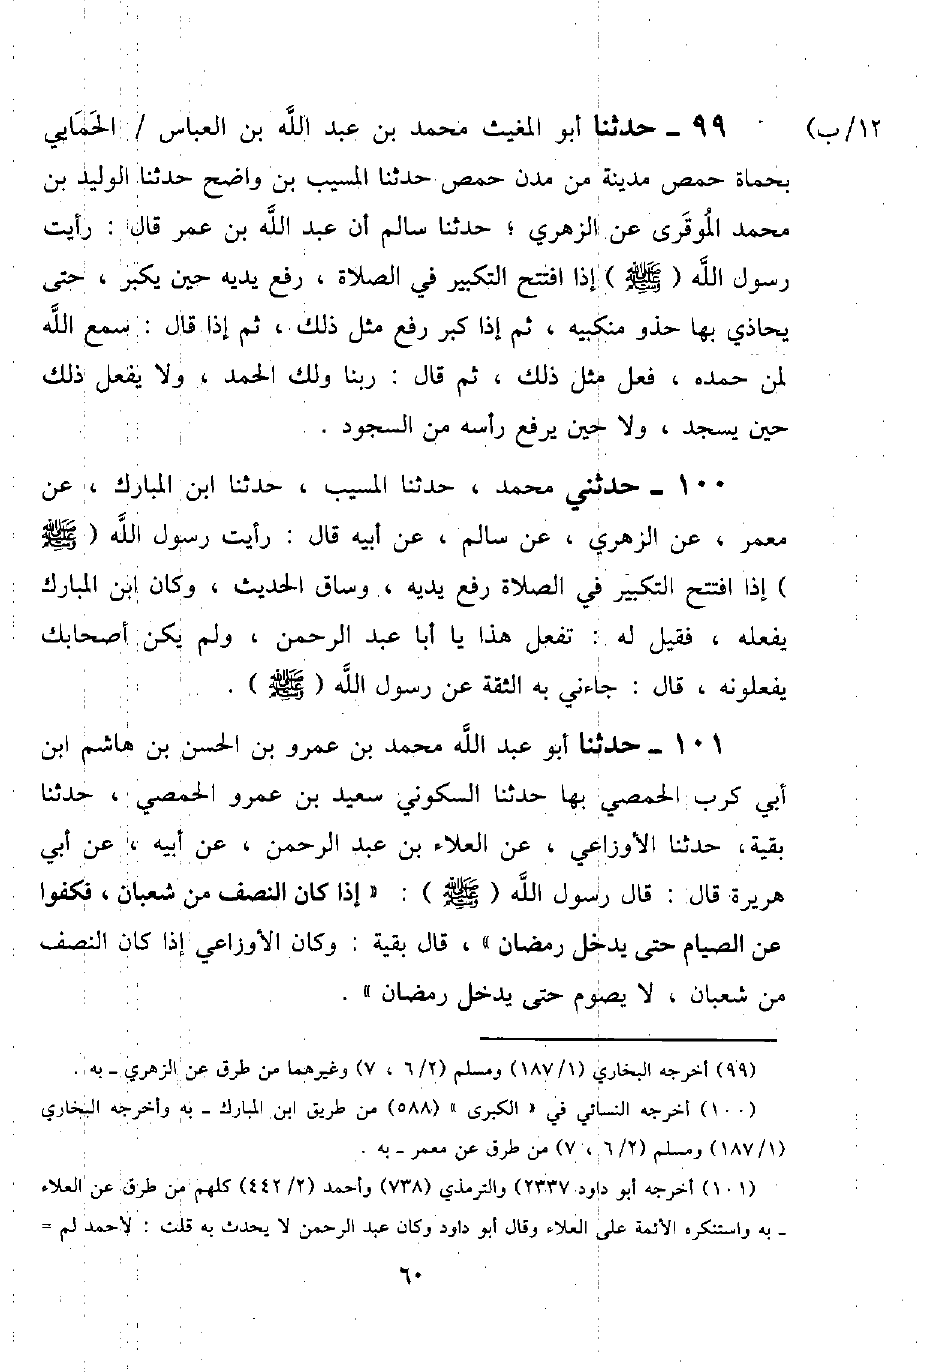 ١٢/ب) ٩٩ ـ حدثنا أبو المغيث محمد بن عبد اللَّه بن العباس / الحَمَايي
بحماة حمص مدينة من مدن حمص حدثنا المسيب بن واضح حدثنا الوليد بن
محمد المُوقَرى عن الزهري ؛ حدثنا سالم أن عبد اللَّه بن عمر قال : رأيت
رسول اللَّه ( ﷺ ) إذا افتتح التكبير في الصلاة ، رفع يديه حين يكبر ، حتى
يحاذي بها حذو منكبيه ، ثم إذا كبر رفع مثل ذلك ، ثم إذا قال : سمع اللَّه
لمن حمده ، فعل مثل ذلك ، ثم قال : ربنا ولك الحمد ، ولا يفعل ذلك
حين يسجد ، ولا حين يرفع رأسه من السجود .
١٠٠ ـ حدثني محمد ، حدثنا المسيب ، حدثنا ابن المبارك ، عن
معمر ، عن الزهري ، عن سالم ، عن أبيه قال : رأيت رسول اللَّه ( ﷺ
) إذا افتتح التكبير في الصلاة رفع يديه ، وساق الحديث ، وكان ابن المبارك
يفعله ، فقيل له : تفعل هذا يا أبا عبد الرحمن ، ولم يكن أصحابك
يفعلونه ، قال : جاءني به الثقة عن رسول اللَّه ( ﷺ ) .
١٠١ ـ حدثنا أبو عبد اللَّه محمد بن عمرو بن الحسن بن هاشم ابن
أبي كرب الحمصي بها حدثنا السكوني سعيد بن عمرو الحمصي ، حدثنا
بقية، حدثنا الأوزاعي ، عن العلاء بن عبد الرحمن ، عن أبيه ، عن أبي
هريرة قال : قال رسول اللَّه ( ﷺ ) : « إذا كان النصف من شعبان ، فكفوا
عن الصيام حتى يدخل رمضان » ، قال بقية : وكان الأوزاعي إذا كان النصف
من شعبان ، لا يصوم حتى يدخل رمضان » .
(٩٩) أخرجه البخاري (١/ ١٨٧) ومسلم (٢/ ٦ ، ٧) وغيرهما من طرق عن الزهري ـ به .
(١٠٠) أخرجه النسائي في « الكبرى » (٥٨٨) من طريق ابن المبارك ـ به وأخرجه البخاري
(١/ ١٨٧) ومسلم (٢/ ٦ ، ٧) من طرق عن معمر ـ به .
(١٠١) أخرجه أبو داود ٢٣٣٧) والترمذي (٧٣٨) وأحمد (٢/ ٤٤٢) كلهم من طرق عن العلاء
ـ به واستنكره الأئمة على العلاء وقال أبو داود وكان عبد الرحمن لا يحدث به قلت : لأحمد لم =
٦٠